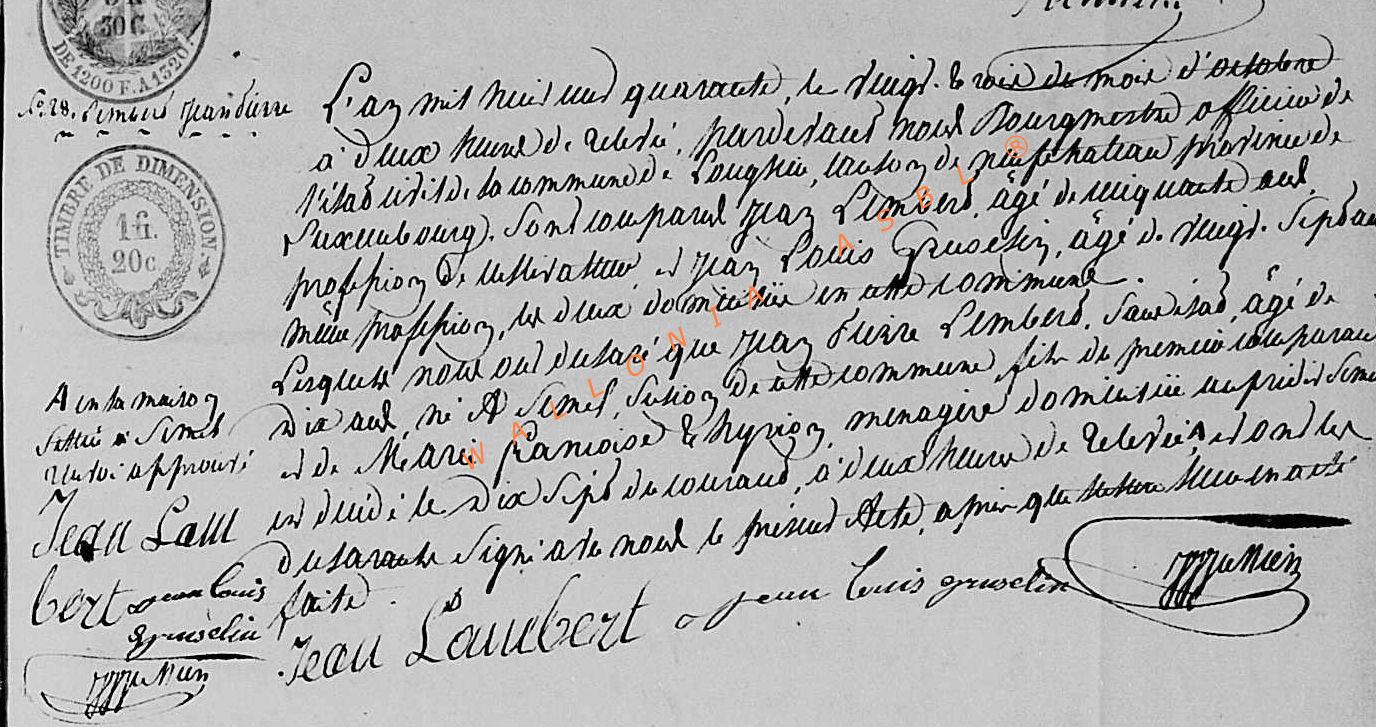 30C.
DE 1200 F. A 1320 F.
No. 28. Lambert Jean Pierre
TIMBRE DE DIMENSION.
1 fl.
20c
L'an mil huit cent quarante, le vingt-trois du mois d'octobre
à deux heures de relevée, pardevant nous Bourgmestre officier de
l'état civil de la commune de Longlier, canton de neufchateau province de
Luxembourg, sont comparus Jean Lambert, âgé de cinquante ans,
profession de cultivateur et Jean Louis Gruselin, âgé de vingt-sept ans
même profession, les deux domiciliés en cette commune.
Lesquels nous ont déclaré que Jean Pierre Lambert, sans état, âgé de
dix ans, né à Semel, section de cette commune fils du premier comparant
et de Marie Françoise Thyrion, ménagère domiciliée au prédit Semel
est décédé le dix sept du courant, à deux heures de relevée, et ont les
déclarants signé avec nous le présent Acte, après que lecture leur en a été
faite.
A en sa maison
située à Semel
renvoi approuvé
Jean Lam
bert Jean Louis
gruselin
Jean Lambert Jean Louis gruselin
WALLONIA ASBL ®